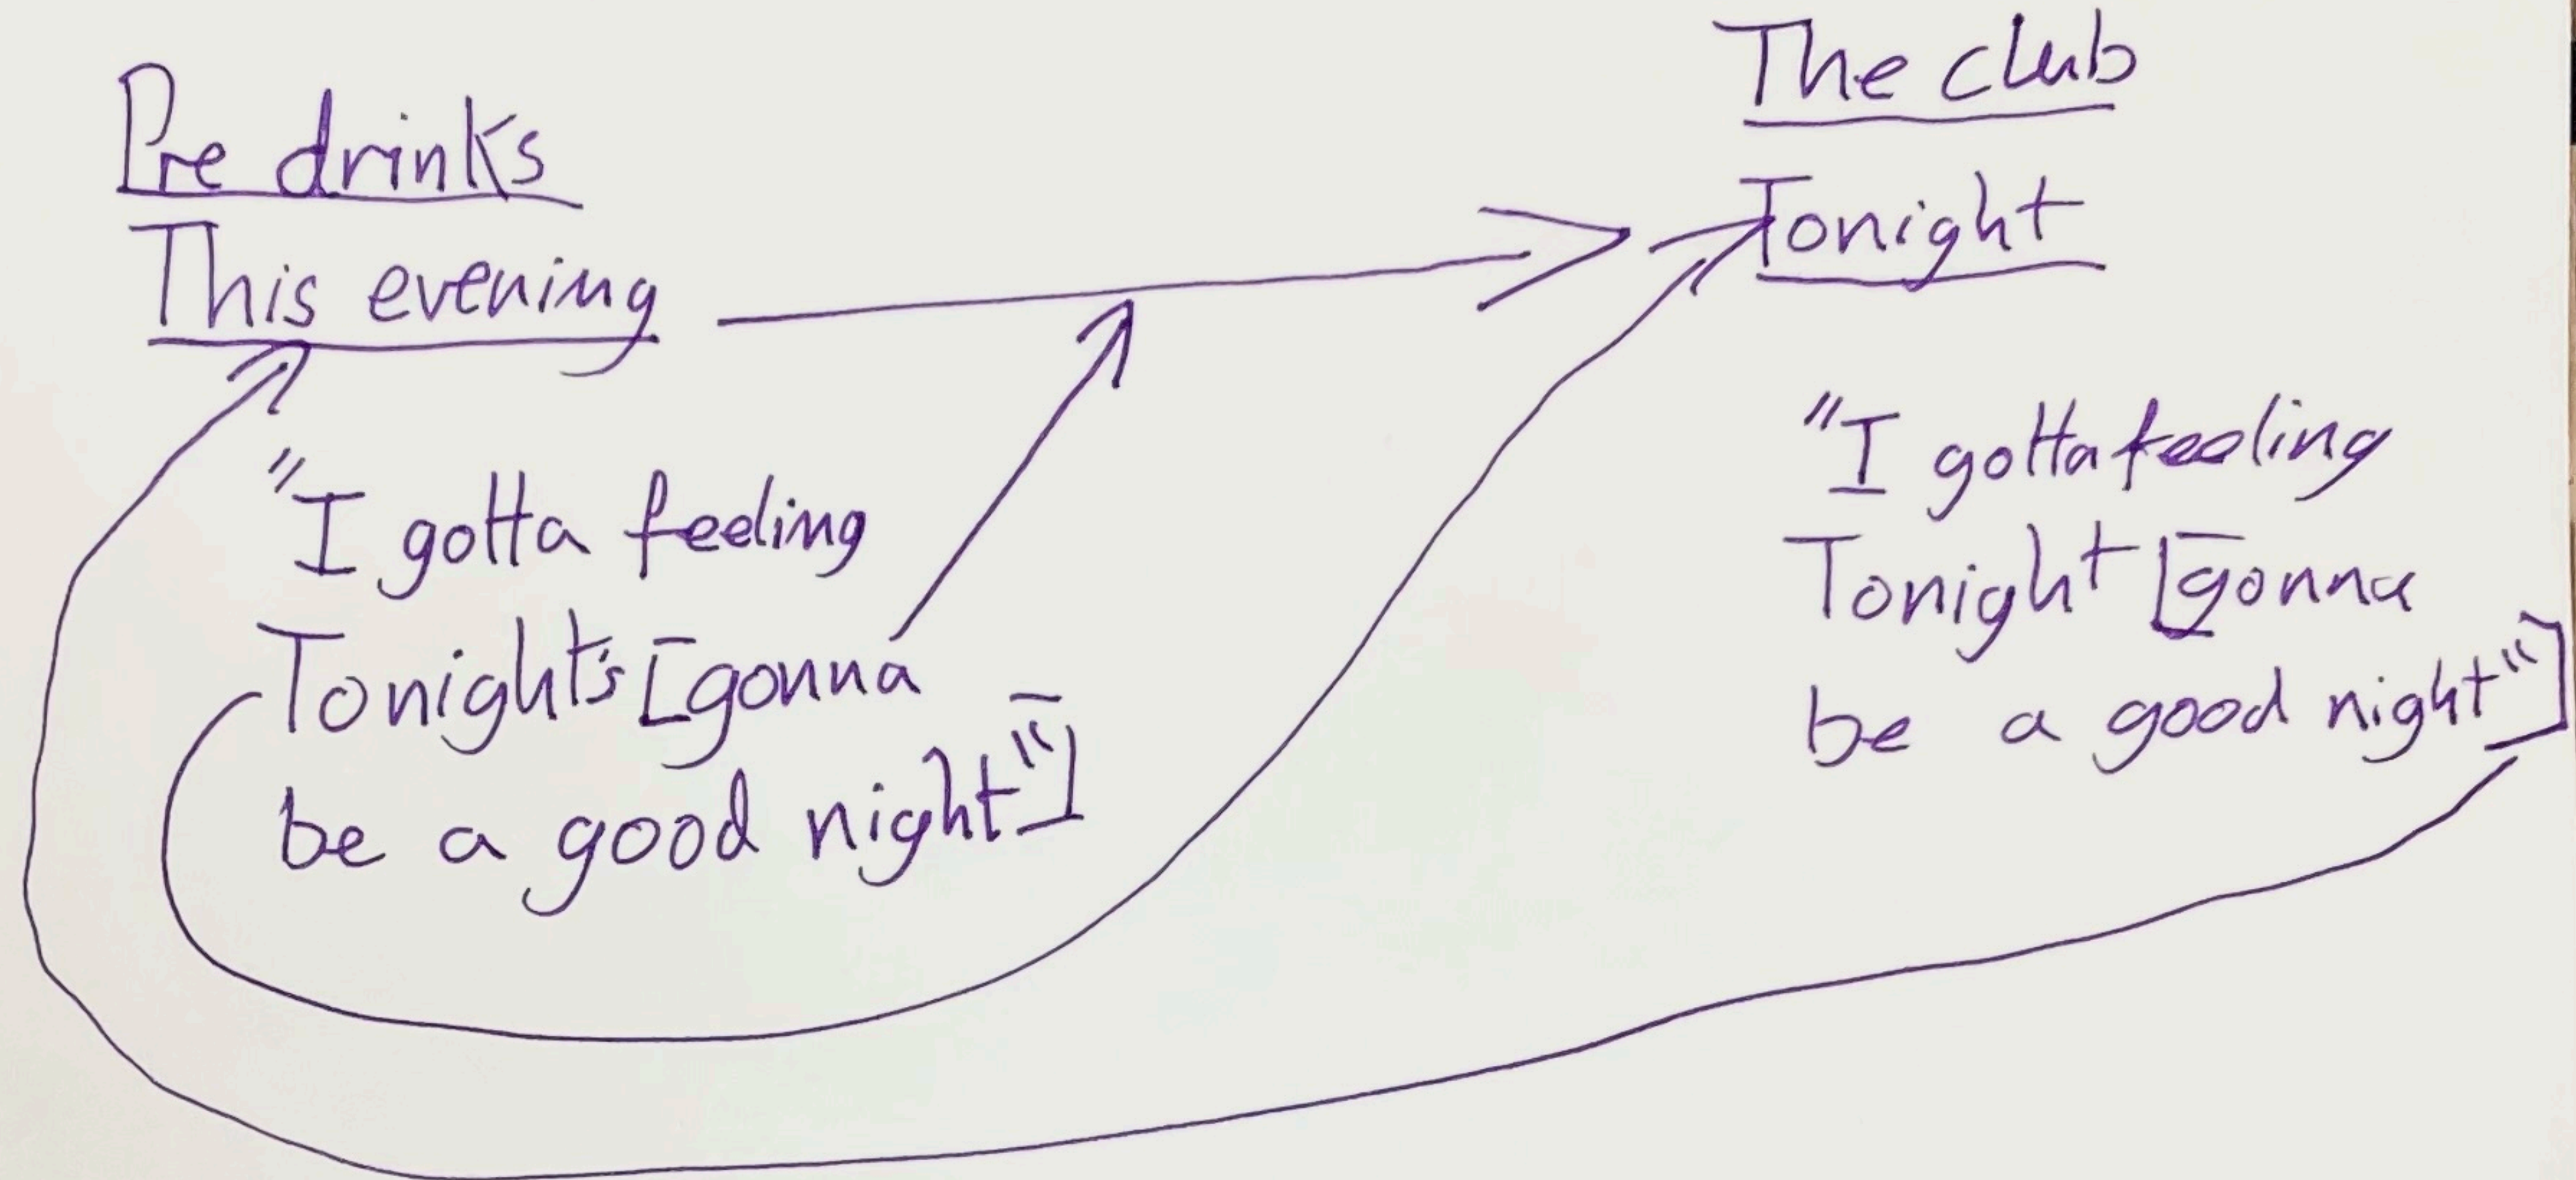 Pre drinks
This evening
"I gotta feeling
Tonight's [gonna
be a good night"]
The club
Tonight
"I gotta feeling
Tonight [gonna
be a good night"]